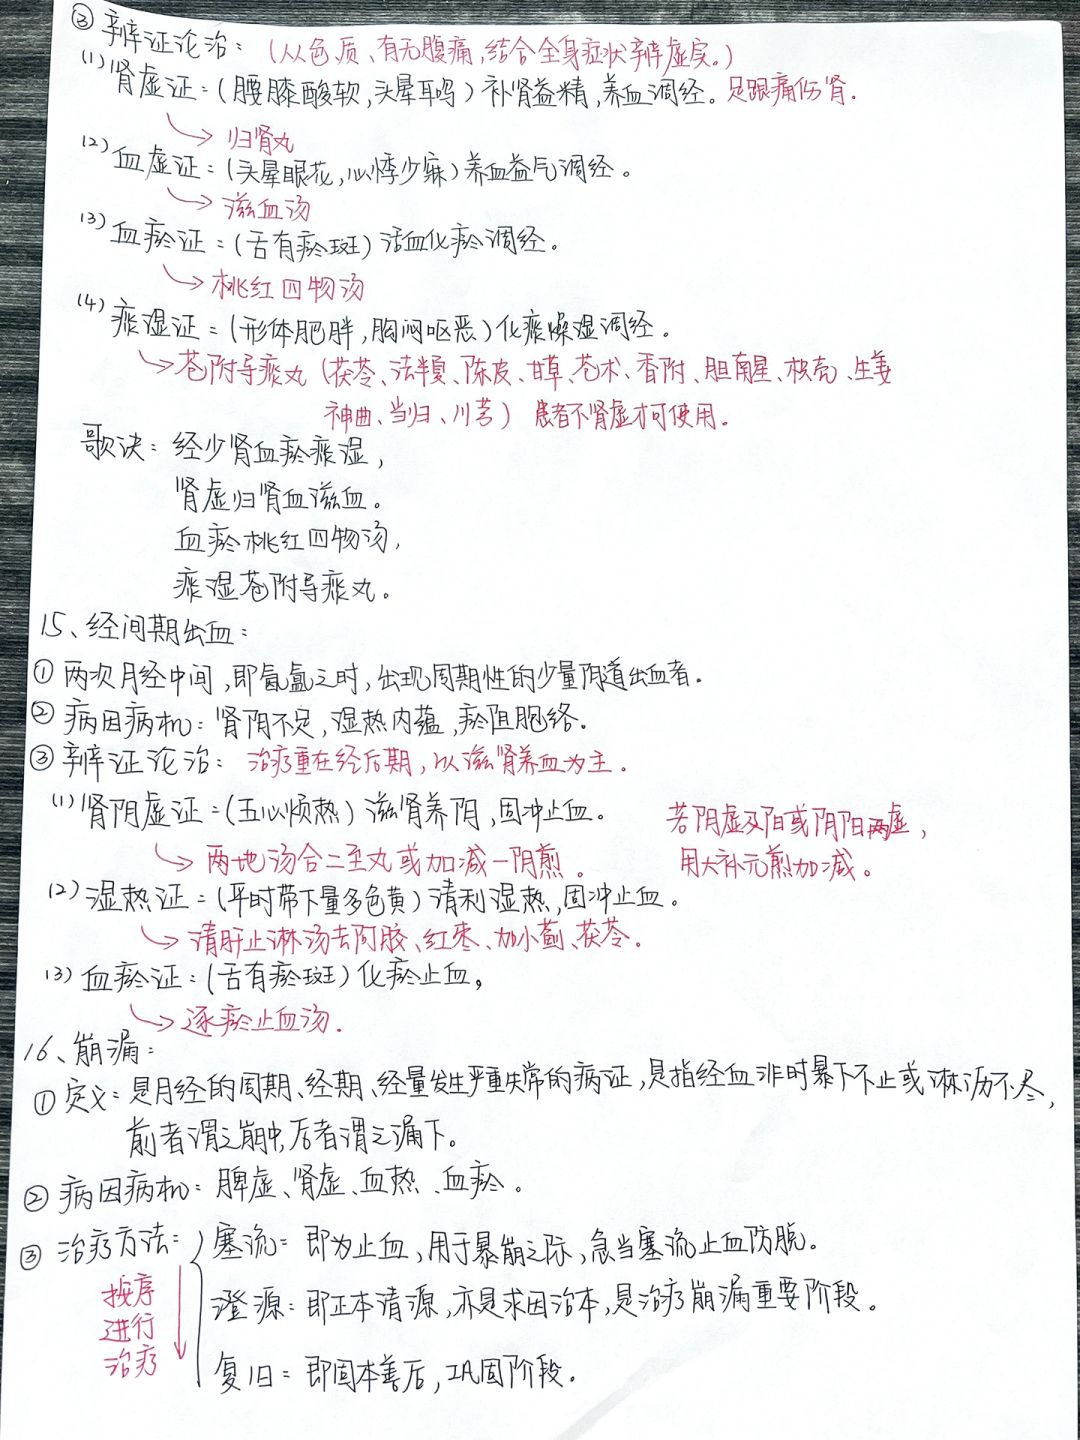 ③ 辨证论治：（从色、质、有无腹痛，结合全身症状辨虚实。）
(1) 肾虚证：（腰膝酸软，头晕耳鸣）补肾益精，养血调经。足跟痛伤肾.
归肾丸
(2) 血虚证：（头晕眼花，心悸少寐）养血益气调经。
滋血汤
(3) 血瘀证：（舌有瘀斑）活血化瘀调经。
桃红四物汤
(4) 痰湿证：（形体肥胖，胸闷呕恶）化痰燥湿调经。
苍附导痰丸（茯苓、法半夏、陈皮、甘草、苍术、香附、胆南星、枳壳、生姜
神曲、当归、川芎）患者不肾虚才可使用.
歌诀：经少肾血瘀痰湿，
肾虚归肾血滋血。
血瘀桃红四物汤，
痰湿苍附导痰丸。
15、经间期出血：
① 两次月经中间，即氤氲之时，出现周期性的少量阴道出血者.
② 病因病机：肾阴不足，湿热内蕴，瘀阻胞络.
③ 辨证论治：治疗重在经后期，以滋肾养血为主.
(1) 肾阴虚证：（五心烦热）滋肾养阴，固冲止血。 若阴虚及阳或阴阳两虚，
两地汤合二至丸或加减一阴煎。 用大补元煎加减。
(2) 湿热证：（平时带下量多色黄）清利湿热，固冲止血。
清肝止淋汤去阿胶、红枣、加小蓟、茯苓.
(3) 血瘀证：（舌有瘀斑）化瘀止血，
逐瘀止血汤.
16、崩漏：
① 定义：是月经的周期、经期、经量发生严重失常的病证，是指经血非时暴下不止或淋沥不尽，
前者谓之崩中，后者谓之漏下。
② 病因病机：脾虚、肾虚、血热、血瘀。
③ 治疗方法： 塞流：即为止血，用于暴崩之际，急当塞流止血防脱。
按序
进行
治疗
澄源：即正本清源，亦是求因治本，是治疗崩漏重要阶段。
复旧：即固本善后，巩固阶段。